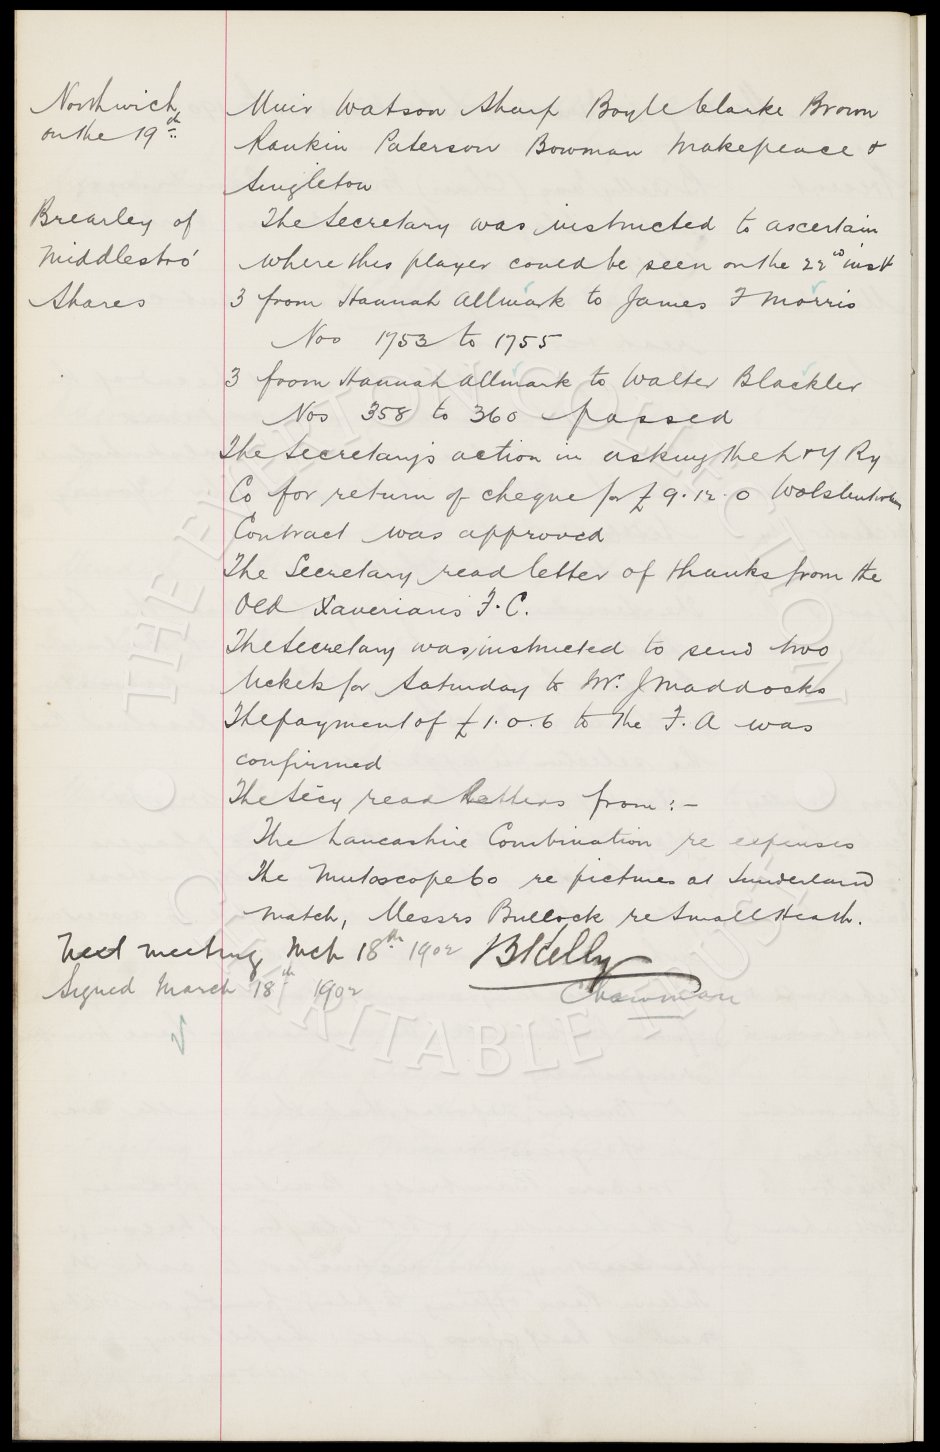 Northwich Muir Watson Sharp Boyle Clarke Brown
on the 19th Rankin Paterson Bowman Makepeace &
Singleton
Brearley of The Secretary was instructed to ascertain
Middlesbro' where this player could be seen on the 22nd inst
Shares 3 from Hannah Allmark to James F Morris
Nos 1753 to 1755
3 from Hannah Allmark to Walter Blackler
Nos 358 to 360 passed
The Secretary's action in asking the L & Y Ry
Co for return of cheque for £9.12.0 Wolstenholm
Contract was approved
The Secretary read letter of thanks from the
Old Xaverians F.C.
The Secretary was instructed to send two
tickets for Saturday to Mr. J Maddocks
The payment of £1.0.6 to the F.A was
confirmed
The Secy read letters from :-
The Lancashire Combination re expenses
The Mutoscope Co re pictures at Sunderland
match, Messrs Bullock re Small Heath.
Next meeting Mch 18th 1902 B Kelly
Signed March 18th 1902 Chairman
THE EVERTON COLLECTION
CHARITABLE TRUST